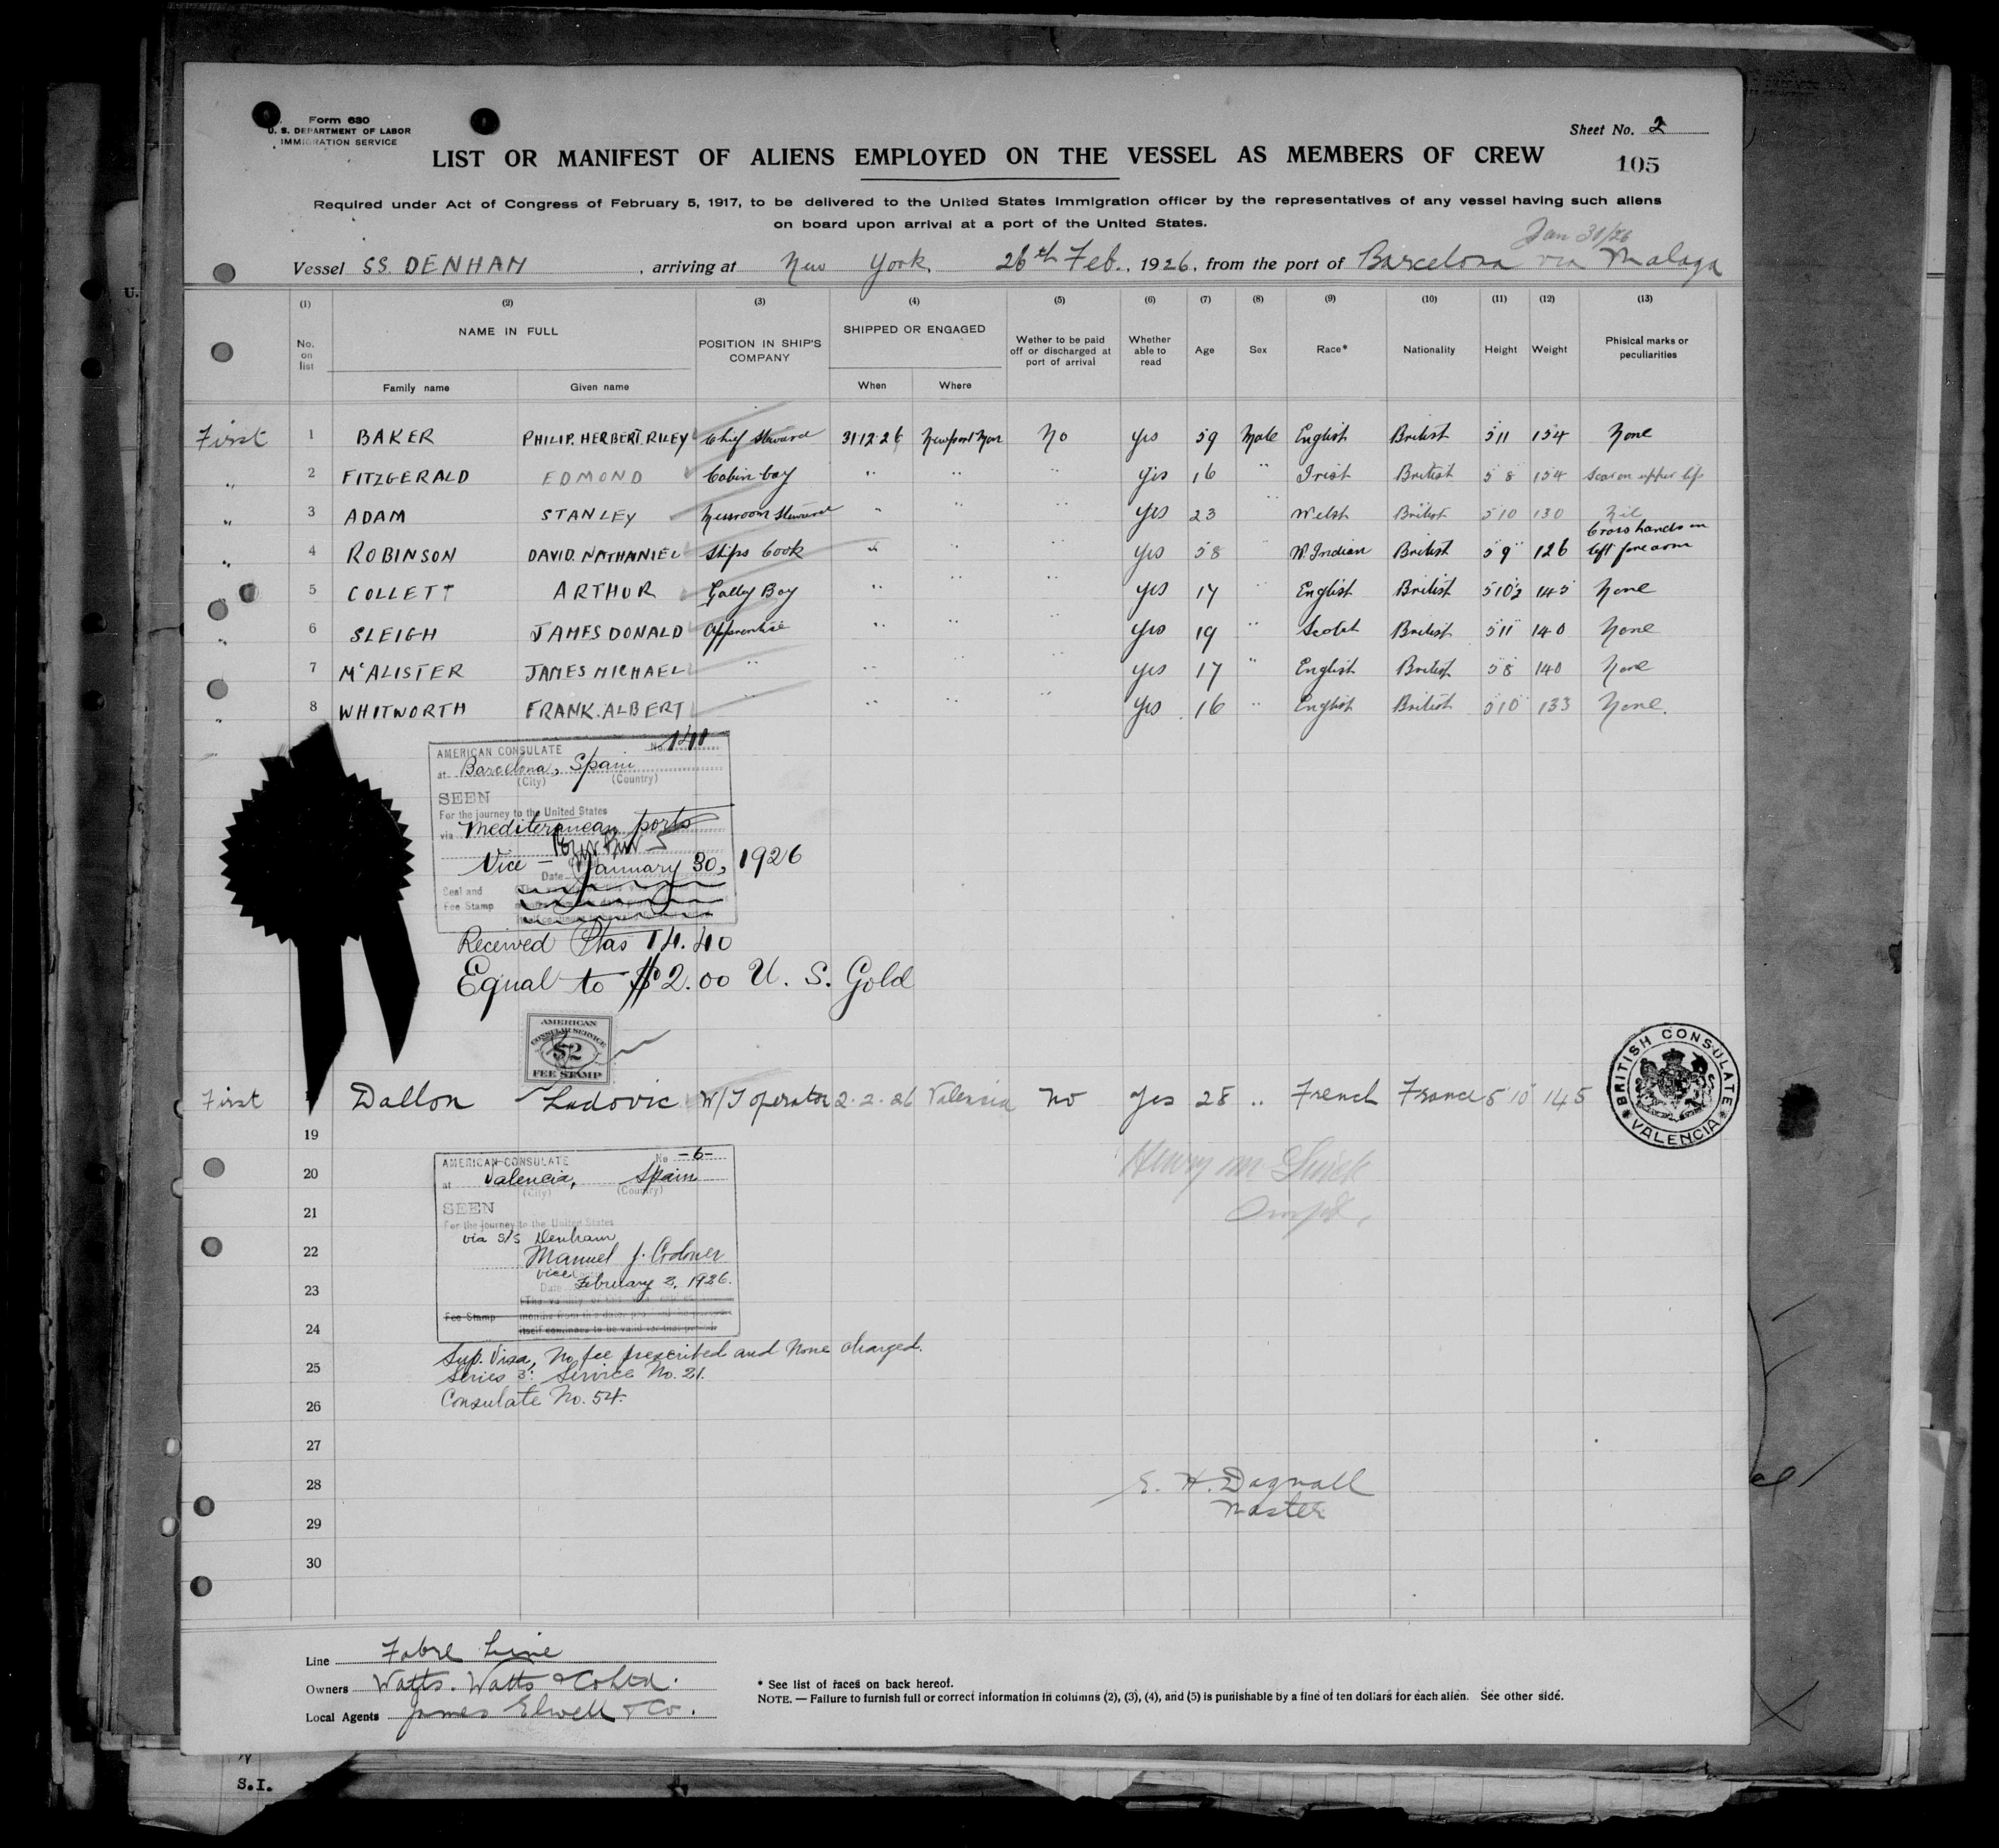 Form 630
U. S. DEPARTMENT OF LABOR
IMMIGRATION SERVICE
Sheet No. 2
LIST OR MANIFEST OF ALIENS EMPLOYED ON THE VESSEL AS MEMBERS OF CREW
105
Required under Act of Congress of February 5, 1917, to be delivered to the United States Immigration officer by the representatives of any vessel having such aliens
on board upon arrival at a port of the United States.
Jan 31/26
Vessel SS DENHAM, arriving at New York, 26th Feb., 1926, from the port of Barcelona via Malaga
(1) (2) (3) (4) (5) (6) (7) (8) (9) (10) (11) (12) (13)
No. on list NAME IN FULL Family name Given name POSITION IN SHIP'S COMPANY SHIPPED OR ENGAGED When Where Wether to be paid off or discharged at port of arrival Whether able to read Age Sex Race* Nationality Height Weight Phisical marks or peculiarities
First 1 BAKER PHILIP. HERBERT. RILEY Chief Steward 31 12 26 Newport Mon No Yes 59 Male English British 5 11 154 None
" 2 FITZGERALD EDMOND Cabin boy " " " Yes 16 " Irish British 5 8 154 Scar on upper lip
" 3 ADAM STANLEY Messroom Steward " " " Yes 23 " Welsh British 5 10 130 Nil
" 4 ROBINSON DAVID. NATHANIEL Ships Cook " " " Yes 58 " W. Indian British 5 9 126 Cross hands on left forearm
" 5 COLLETT ARTHUR Galley Boy " " " Yes 17 " English British 5 10½ 145 None
" 6 SLEIGH JAMES DONALD Apprentice " " " Yes 19 " Scotch British 5 11 140 None
7 McALISTER JAMES MICHAEL " " " " Yes 17 " English British 5 8 140 None
" 8 WHITWORTH FRANK. ALBERT " " " " Yes 16 " English British 5 10 133 None.
AMERICAN CONSULATE No. 141
at Barcelona, Spain
(City) (Country)
SEEN
For the journey to the United States
via Mediteranean ports
Vice -
Date January 30, 1926
Seal and
Fee Stamp
Received Ptas 14.40
Equal to $2.00 U. S. Gold
AMERICAN
CONSULAR SERVICE
$2
FEE STAMP
First Dallon Ludovic W/T operator 2. 2. 26 Valencia No Yes 28 " French France 5 10 145
BRITISH CONSULATE
VALENCIA
19
20
21
22
23
24
25
26
27
28
29
30
AMERICAN CONSULATE No -6-
at Valencia, Spain
(City) (Country)
SEEN
For the journey to the United States
via S/S Denham
Manuel J. Codoner
Vice
Date February 2, 1926.
Fee Stamp
itself continues to be valid for that period
Sup. Visa, No fee prescribed and none charged.
Series 3: Service No. 21.
Consulate No. 54.
Henry M
E. H. Dagnall
Master
Line Fabre Line
Owners Watts. Watts & Co Ltd.
Local Agents James Elwell & Co.
* See list of races on back hereof.
NOTE. — Failure to furnish full or correct information in columns (2), (3), (4), and (5) is punishable by a fine of ten dollars for each alien. See other side.
S.I.